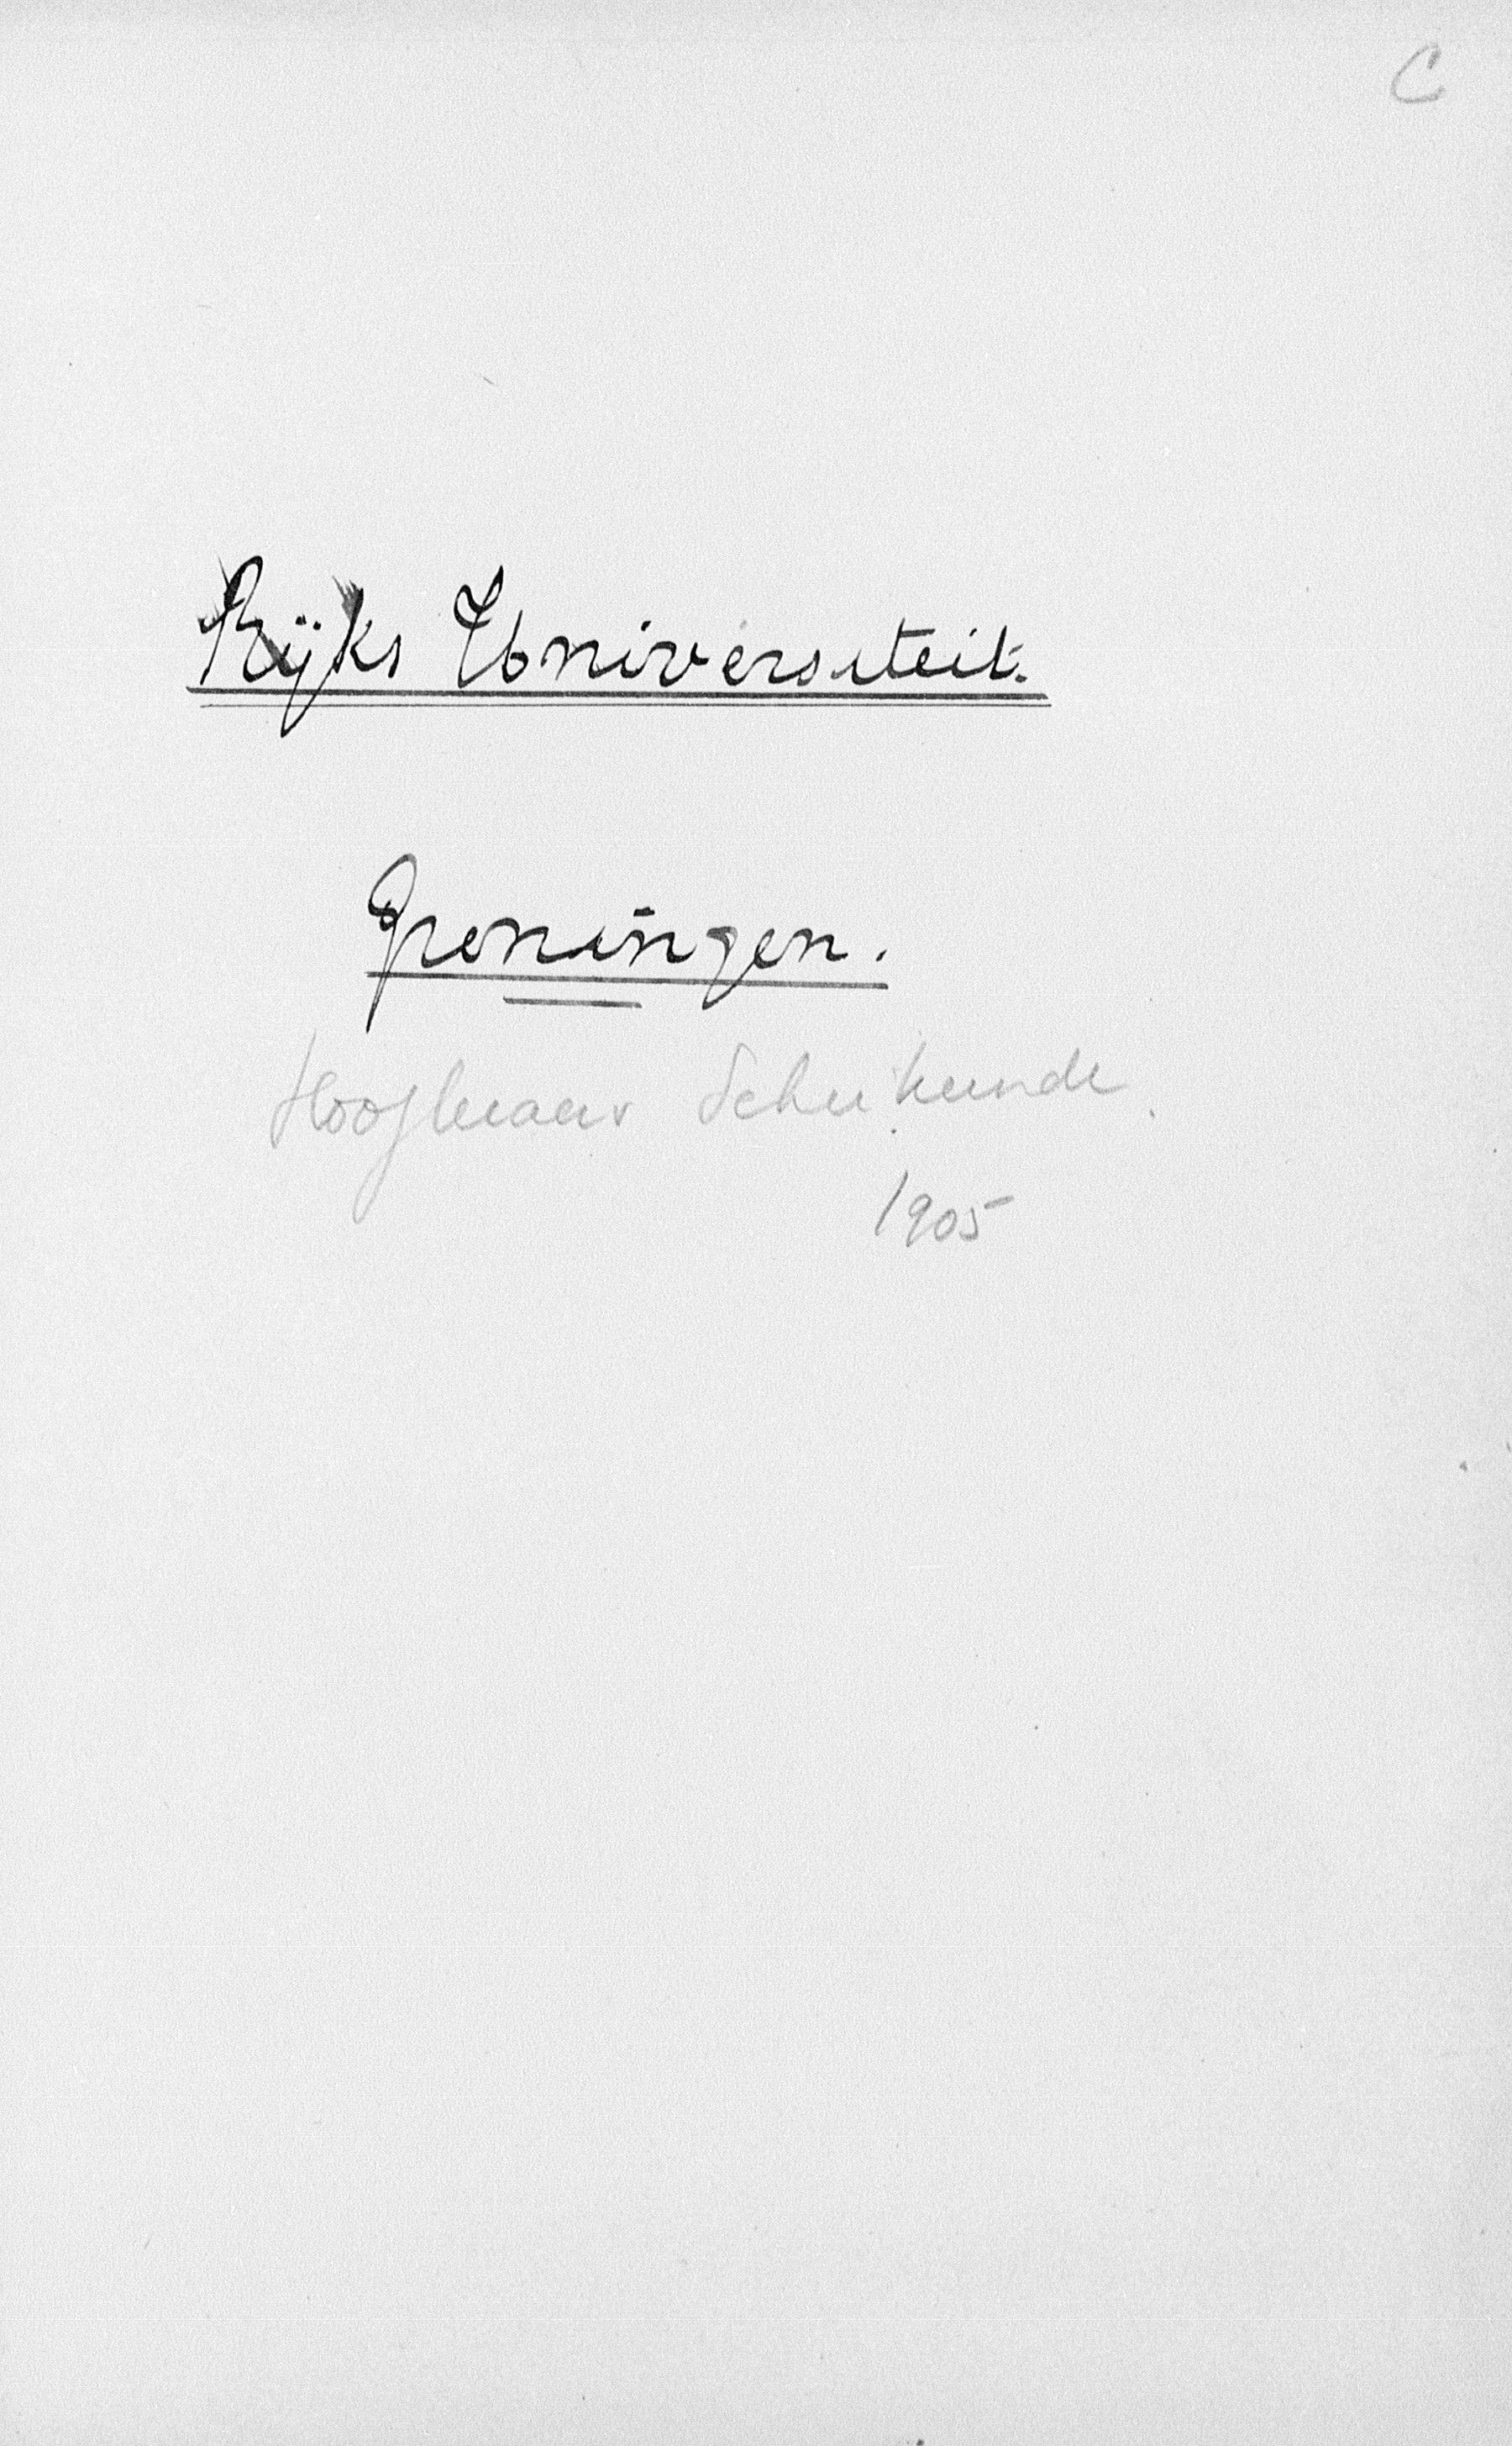 C
Rijks Universiteit.
Groningen.
Hoogleraar Scheikunde.
1905